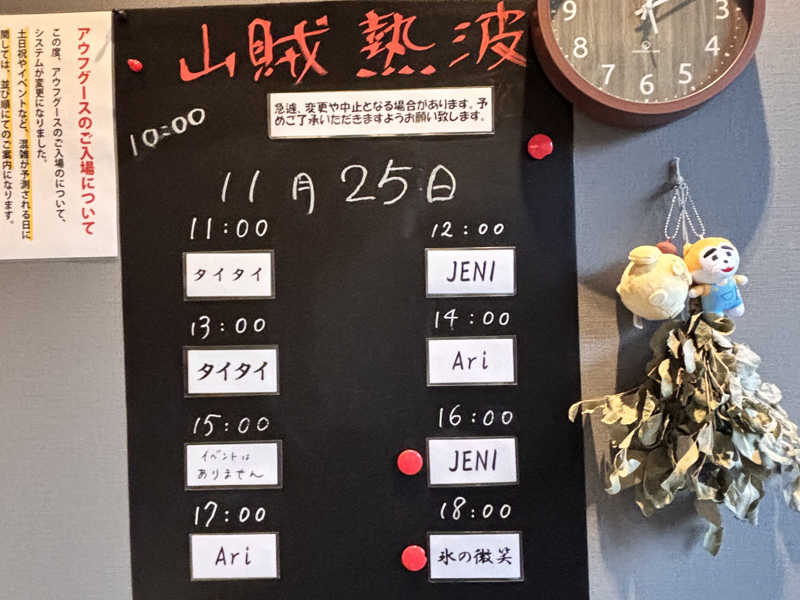 アウフグースのご入場について
この度、アウフグースのご入場のについて、
システムが変更になりました。
土日祝やイベントなど、混雑が予測される日に
関しては、並び順にてのご案内になります。
山賊熱波
急遽、変更や中止となる場合があります。予
めご了承いただきますようお願い致します。
10:00
11月25日
11:00
タイタイ
12:00
JENI
13:00
タイタイ
14:00
Ari
15:00
イベントは
ありません
16:00
JENI
17:00
Ari
18:00
氷の微笑
9
3
8
4
7
6
5